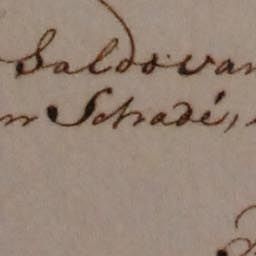 Saldo van
Schadé,,